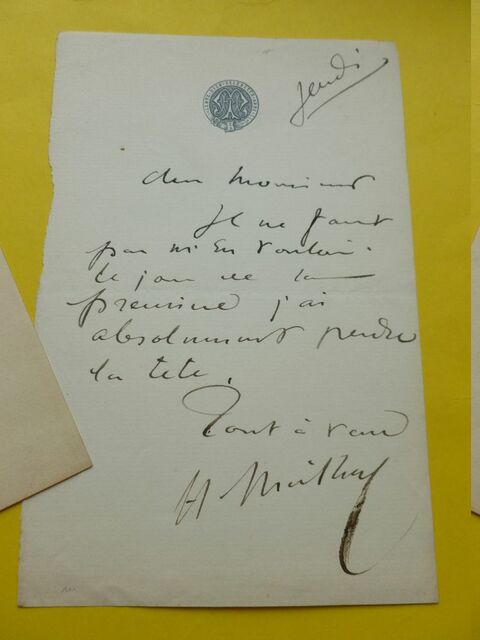 Jeudi
cher Monsieur
Il ne faut
pas m'en vouloir.
Le jour de la
première j'ai
absolument perdu
la tête.
Tout à vous